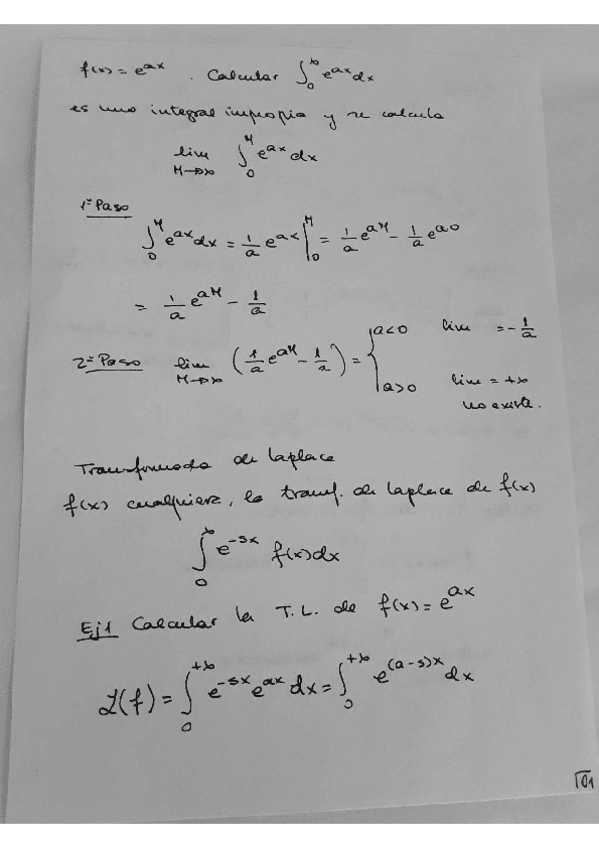 f(x) = e^{ax} . Calcular ∫_0^∞ e^{ax} dx
es una integral impropia y se calcula
lim_{M→∞} ∫_0^M e^{ax} dx
1º Paso
∫_0^M e^{ax} dx = 1/a e^{ax} |_0^M = 1/a e^{aM} - 1/a e^{a0}
= 1/a e^{aM} - 1/a
2º Paso lim_{M→∞} (1/a e^{aM} - 1/a) = { a<0 lim = -1/a
a>0 lim = +∞
no existe.
Transformada de Laplace
f(x) cualquiera, la transf. de Laplace de f(x)
∫_0^∞ e^{-sx} f(x) dx
Ej1 Calcular la T.L. de f(x) = e^{ax}
ℒ(f) = ∫_0^{+∞} e^{-sx} e^{ax} dx = ∫_0^{+∞} e^{(a-s)x} dx
T01